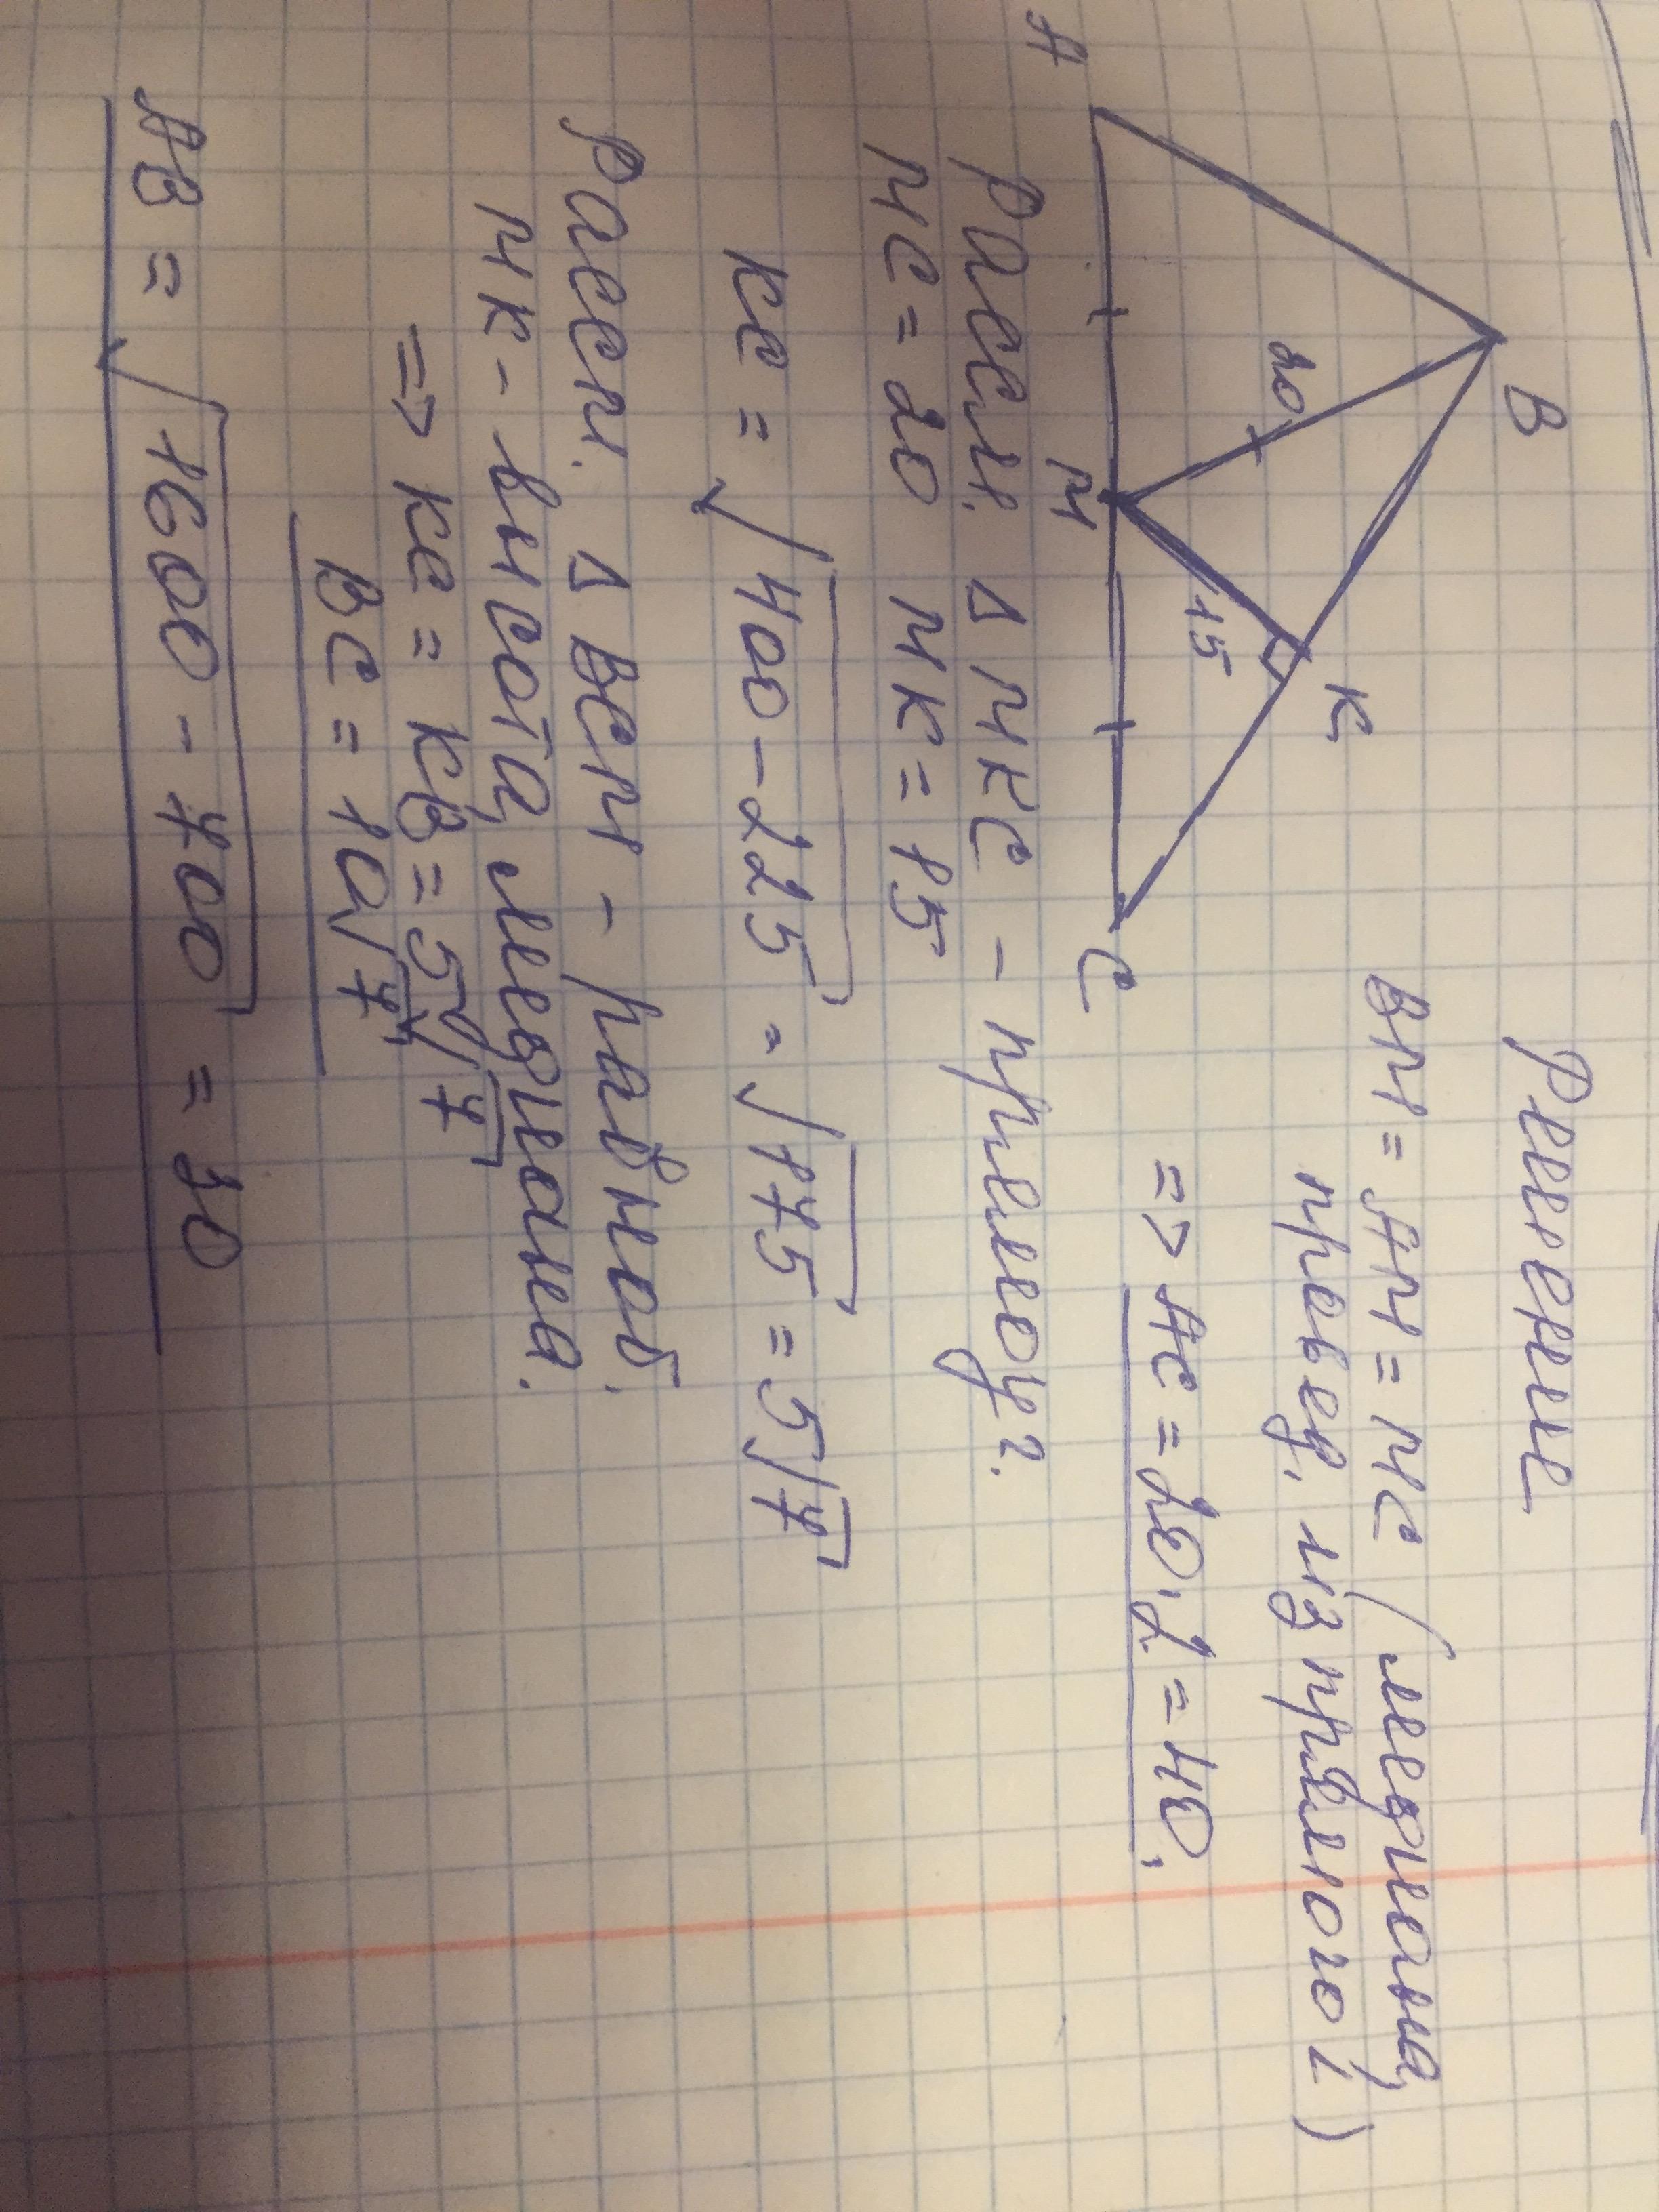 Решение
B
K
20
15
A
M
C
BM = AM = MC (медиана,
провед. из прямого!)
=> AC = 20.2 = 40.
Рассм. Δ MKC - прямоуг.
MC = 20 MK = 15
KC = √400-225 = √175 = 5√7
Рассм. Δ BCM - равноб.
MK - высота, медиана.
=> KC = KB = 5√7
BC = 10√7
AB = √1600 - 700 = 30